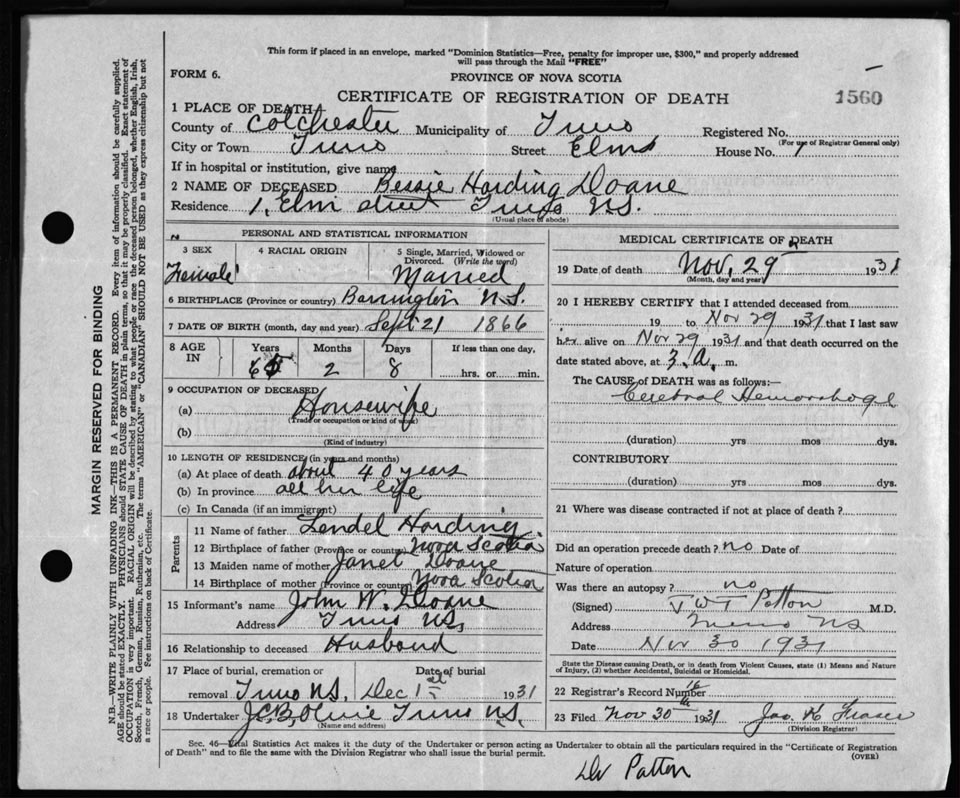 This form if placed in an envelope, marked "Dominion Statistics—Free, penalty for improper use, $300," and properly addressed
will pass through the Mail "FREE"
FORM 6.
PROVINCE OF NOVA SCOTIA
CERTIFICATE OF REGISTRATION OF DEATH
1560
1 PLACE OF DEATH
County of Colchester Municipality of Truro Registered No.
(For use of Registrar General only)
City or Town Truro Street Elm House No. 1
If in hospital or institution, give name
2 NAME OF DECEASED Bessie Harding Doane
Residence 1, Elm street Truro N.S.
(Usual place of abode)
PERSONAL AND STATISTICAL INFORMATION
3 SEX 4 RACIAL ORIGIN 5 Single, Married, Widowed or
Divorced. (Write the word)
Female Married
6 BIRTHPLACE (Province or country) Barrington N.S.
7 DATE OF BIRTH (month, day and year) Sept 21 1866
8 AGE IN Years Months Days If less than one day,
65 2 8 hrs. or min.
9 OCCUPATION OF DECEASED
(a) Housewife
(Trade or occupation or kind of work)
(b)
(Kind of industry)
10 LENGTH OF RESIDENCE (in years and months)
(a) At place of death about 40 years
(b) In province all her life
(c) In Canada (if an immigrant)
Parents
11 Name of father Lendel Harding
12 Birthplace of father (Province or country) Nova Scotia
13 Maiden name of mother Janet Doane
14 Birthplace of mother (Province or country) Nova Scotia
15 Informant's name John W. Doane
Address Truro N.S.
16 Relationship to deceased Husband
17 Place of burial, cremation or Date of burial
removal Truro N.S. Dec 1st 1931
18 Undertaker Truro N.S.
(Name and address)
MEDICAL CERTIFICATE OF DEATH
19 Date of death Nov. 29 1931
(Month, day and year)
20 I HEREBY CERTIFY that I attended deceased from
19 to Nov 29 1931 that I last saw
her alive on Nov 29 1931 and that death occurred on the
date stated above, at 3. A. m.
The CAUSE of DEATH was as follows:—
Cerebral Hemorrhage
(duration) yrs mos dys.
CONTRIBUTORY
(duration) yrs mos dys.
21 Where was disease contracted if not at place of death?
Did an operation precede death? no Date of
Nature of operation
Was there an autopsy? no
(Signed) Patton M.D.
Address Truro NS
Date Nov 30 1931
State the Disease causing Death, or in death from Violent Causes, state (1) Means and Nature
of Injury, (2) whether Accidental, Suicidal or Homicidal.
22 Registrar's Record Number
23 Filed Nov 30th 1931 Jas. K Fraser
(Division Registrar)
Sec. 46—Vital Statistics Act makes it the duty of the Undertaker or person acting as Undertaker to obtain all the particulars required in the "Certificate of Registration
of Death" and to file the same with the Division Registrar who shall issue the burial permit.
(OVER)
Dr Patton
MARGIN RESERVED FOR BINDING
N.B.—WRITE PLAINLY WITH UNFADING INK—THIS IS A PERMANENT RECORD. Every item of information should be carefully supplied.
AGE should be stated EXACTLY. PHYSICIANS should STATE CAUSE OF DEATH in plain terms, so that it may be properly classified. Exact statement of
OCCUPATION is very important. RACIAL ORIGIN will be described by stating to what people or race the deceased person belonged, whether English, Irish,
Scotch, French, German, Russian, Ruthenian, etc. The terms "AMERICAN" or "CANADIAN" SHOULD NOT BE USED as they express citizenship but not
a race or people. Fee instructions on back of Certificate.